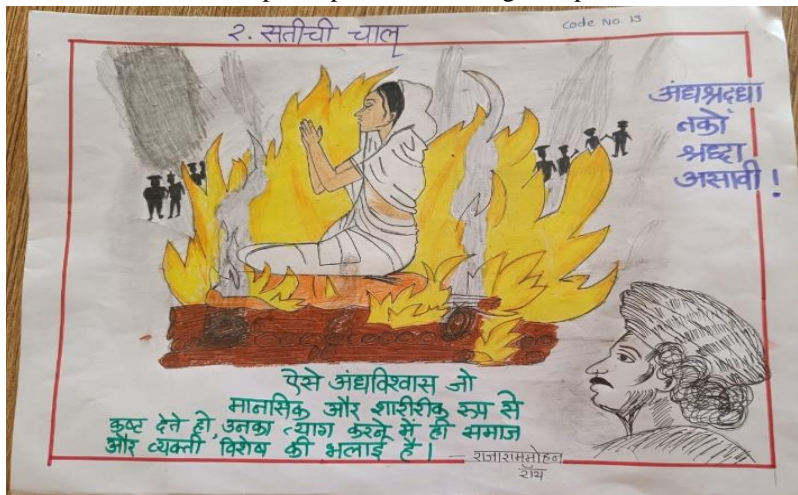 २. सतीची चाल
Code No. 15
अंधश्रद्धा
नको
श्रध्दा
असावी !
ऐसे अंधविश्वास जो
मानसिक और शारीरीक रूप से
कष्ट देते हो, उनका त्याग करने में ही समाज
और व्यक्ती विशेष की भलाई है।
— राजाराममोहन
रॉय